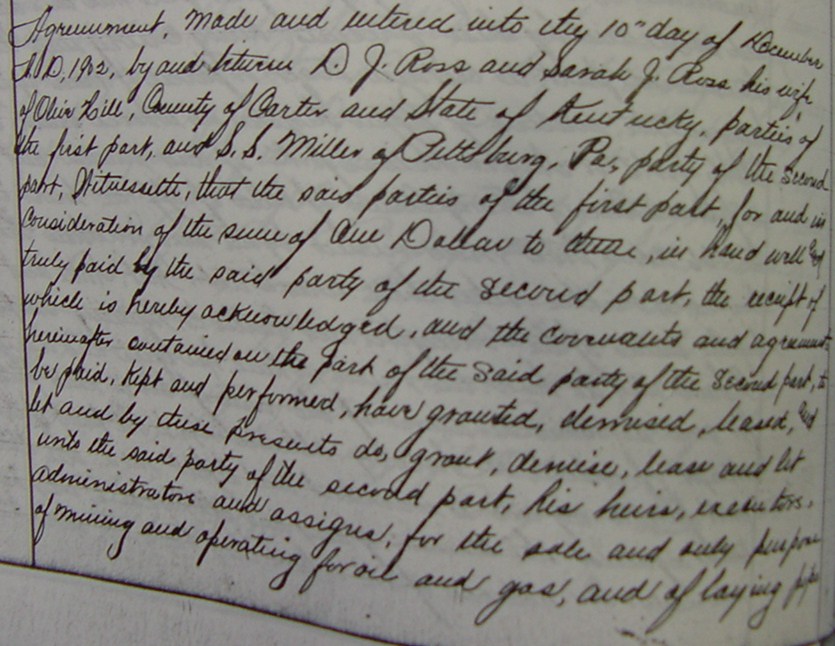 Agreement, Made and entered into this 10" day of December
A.D, 1902, by and between D J. Ross and Sarah J. Ross his wife
of Olive Hill, County of Carter and State of Kentucky, parties of
the first part, and S. S. Miller of Pittsburg, Pa, party of the second
part, Witnesseth, that the said parties of the first part, for and in
consideration of the sum of One Dollar to them, in hand well and
truly paid by the said party of the second part, the receipt of
which is hereby acknowledged, and the covenants and agreements
hereinafter contained on the part of the said party of the second part, to
be paid, kept and performed, have granted, demised, leased, and
let and by these presents do, grant, demise, lease and let
unto the said party of the second part, his heirs, executors,
administrators and assigns, for the sole and only purpose
of mining and operating for oil and gas, and of laying pipe